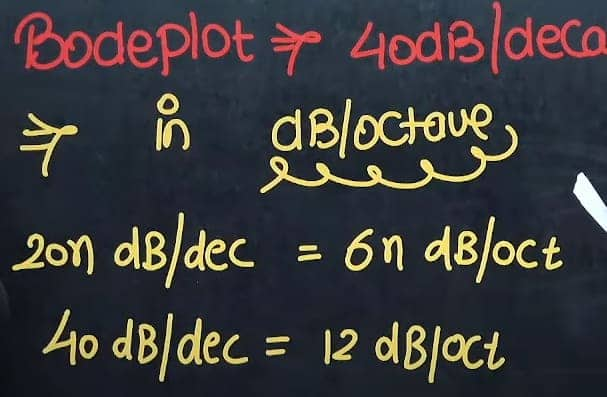 Bodeplot ⇒ 40dB/deca
⇒ in dB/octave,
20n dB/dec = 6n dB/oct
40 dB/dec = 12 dB/oct